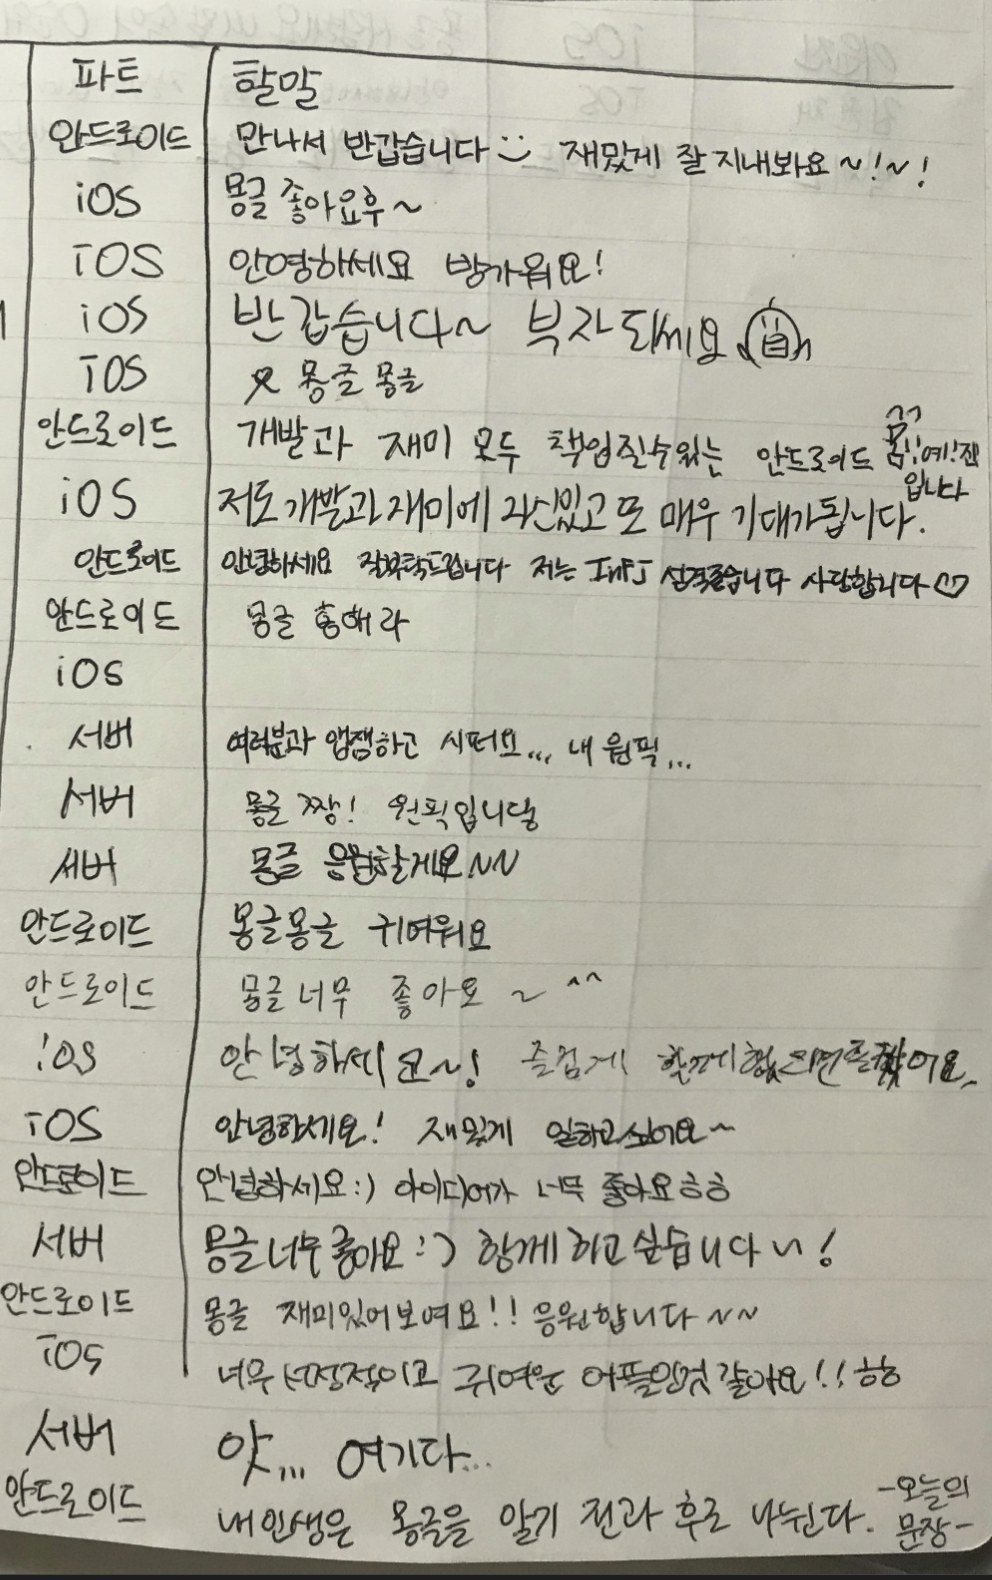 파트 할말
안드로이드 만나서 반갑습니다 재밌게 잘 지내봐요~!~!
iOS 몽글 좋아요후~
iOS 안영하세요 방가워요!
iOS 반갑습니다~ 부자되세요
iOS 몽글몽글
안드로이드 개발과 재미 모두 책임질수있는 안드로이드
입니다
iOS 저도 개발과 재미에 자신있고 또 매우 기대가됩니다.
안드로이드 안녕하세요 잘부탁드립니다 저는 INFJ 성격좋습니다 사랑합니다♡
안드로이드 몽글 흥해라
iOS
서버 여러분과 앱잼하고 시퍼요... 내 원픽...
서버 몽글 짱! 원픽입니당
서버 몽글 응원할게요~~
안드로이드 몽글몽글 귀여워요
안드로이드 몽글 너무 좋아요 ~ ^^
iOS 안녕하세요~! 즐겁게 함께
iOS 안녕하세요! 재밌게 일하고싶어요~
안드로이드 안녕하세요:) 아이디어가 너무 좋아요ㅎㅎ
서버 몽글 너무 좋아요:) 함께 하고 싶습니다~!
안드로이드 몽글 재미있어보여요!! 응원합니다~~
iOS 너무 서정적이고 귀여운 어플일것 같아요!! ㅎㅎ
서버 앗... 여기다...
안드로이드 내 인생은 몽글을 알기 전과 후로 나뉜다. -오늘의
문장-